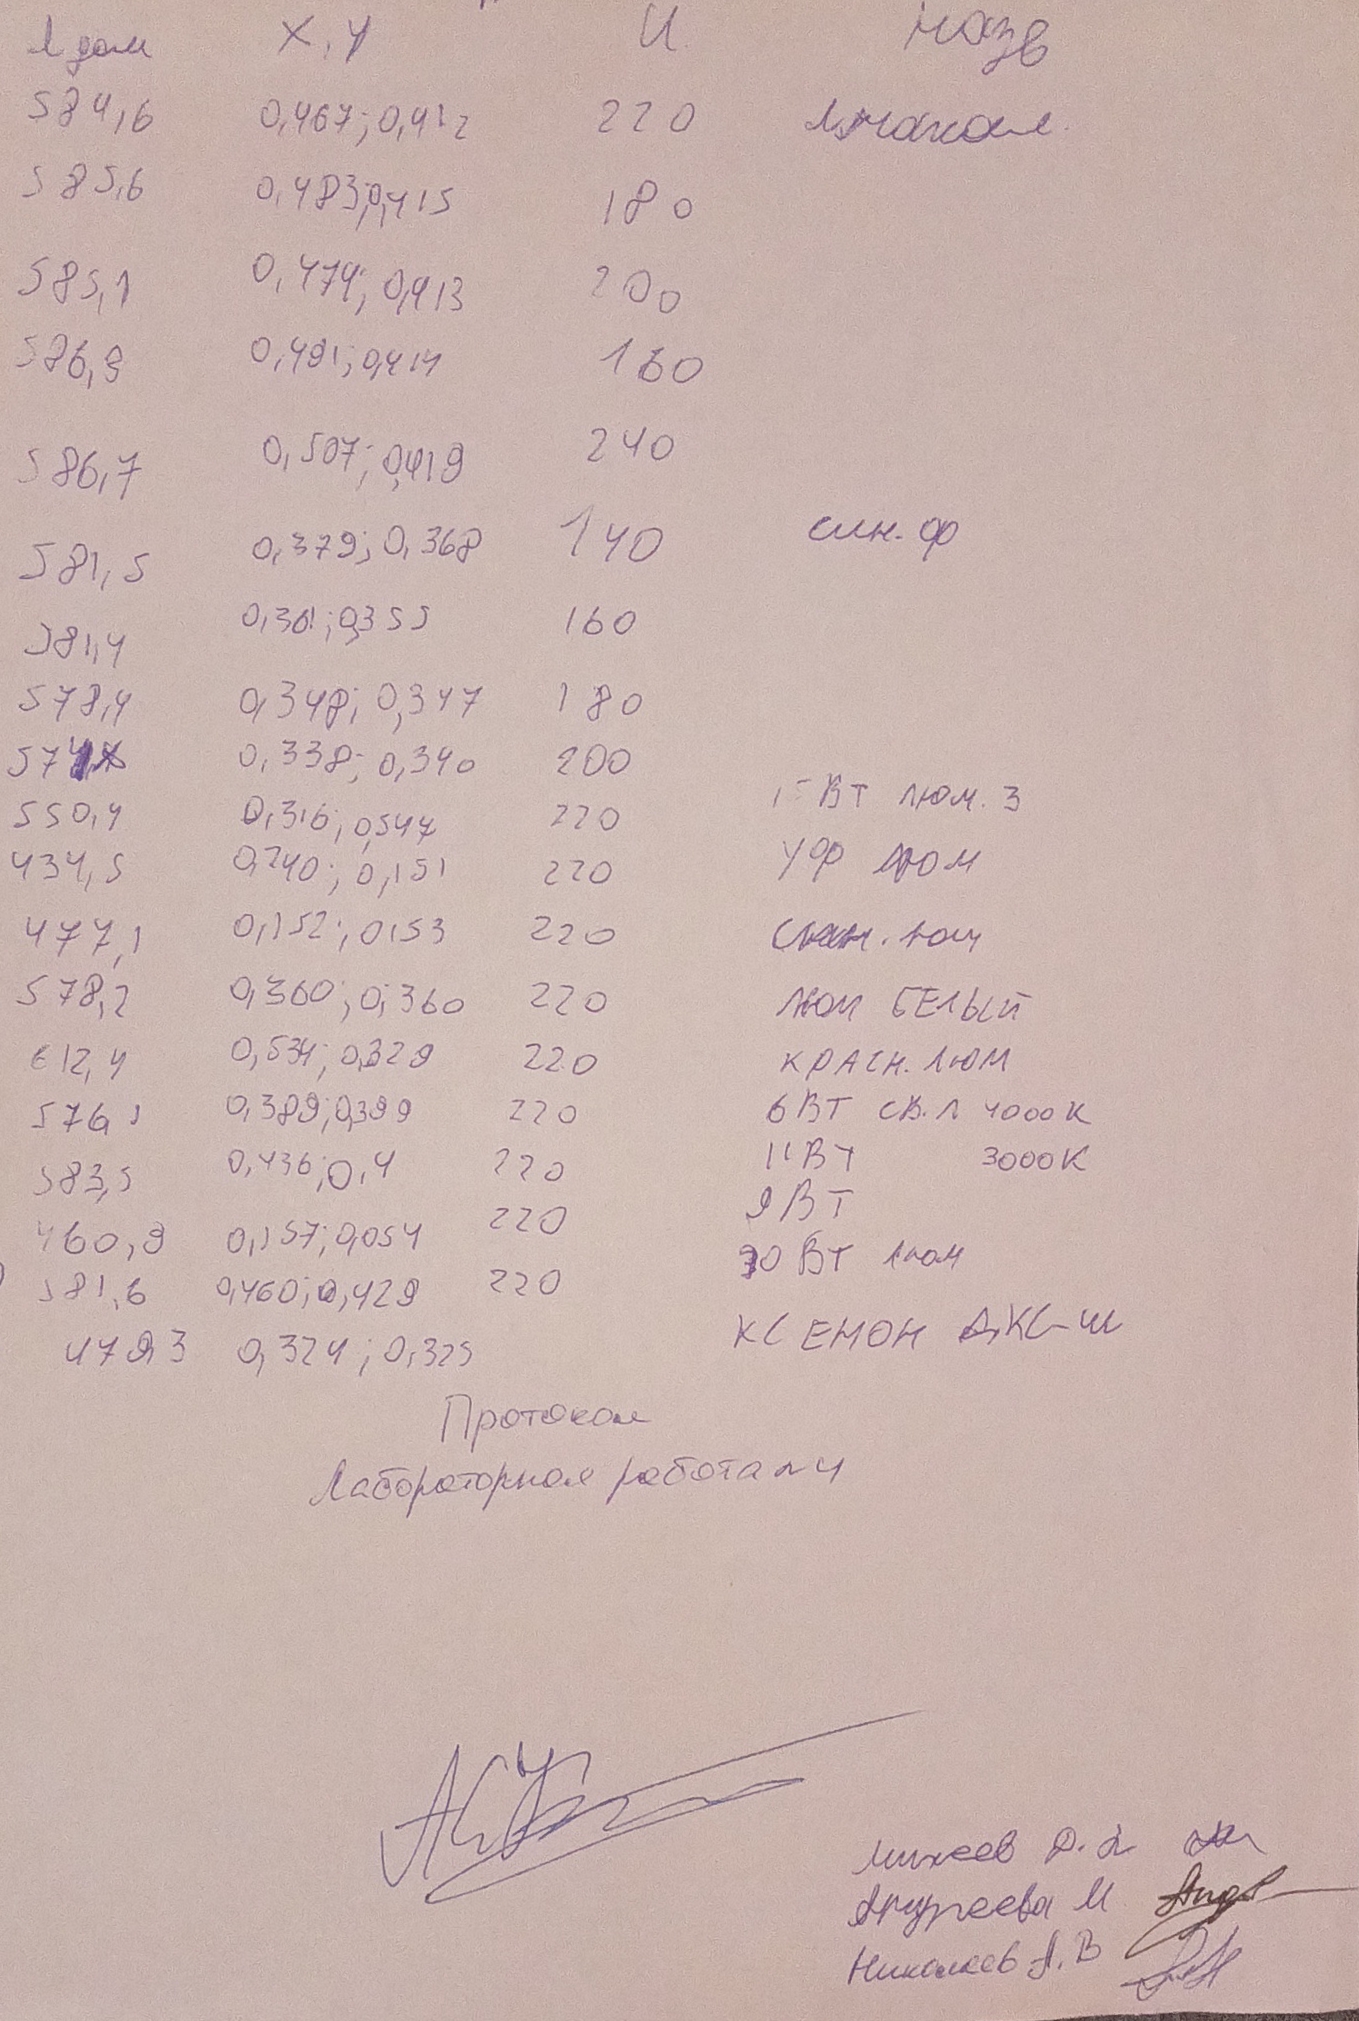 λ дом X, У U. Назв
584,6 0,467; 0,412 220 л.накал.
585,6 0,483; 0,415 180
585,1 0,474; 0,413 200
586,9 0,491; 0,414 160
586,7 0,507; 0,419 240
581,5 0,379; 0,368 140 син. ф
581,4 0,361; 0,355 160
578,4 0,348; 0,347 180
0,338; 0,340 200
550,4 0,316; 0,547 220 ВТ люм. 3
434,5 0,240; 0,151 220 УФ люм
477,1 0,152; 0,153 220 люм
578,2 0,360; 0,360 220 люм БЕЛЫЙ
612,4 0,534; 0,329 220 КРАСН. ЛЮМ
576,1 0,389; 0,399 220 6 ВТ СВ. Л 4000К
583,5 0,436; 0,4 220 11 ВТ 3000К
460,9 0,157; 0,054 220 9 ВТ
581,6 0,460; 0,429 220 30 ВТ люм
479,3 0,324; 0,325 КСЕНОН ДКС-Ш
Протокол
Лабораторная работа №4
Михеев Д.
Андреева М
Николаев А. В